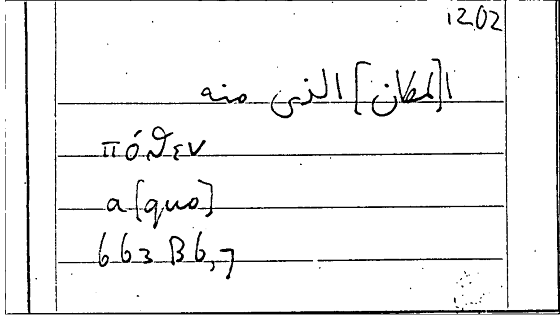 1202
ا[لمكان] الذى منه
πόθεν
a[quo]
663 B6,7